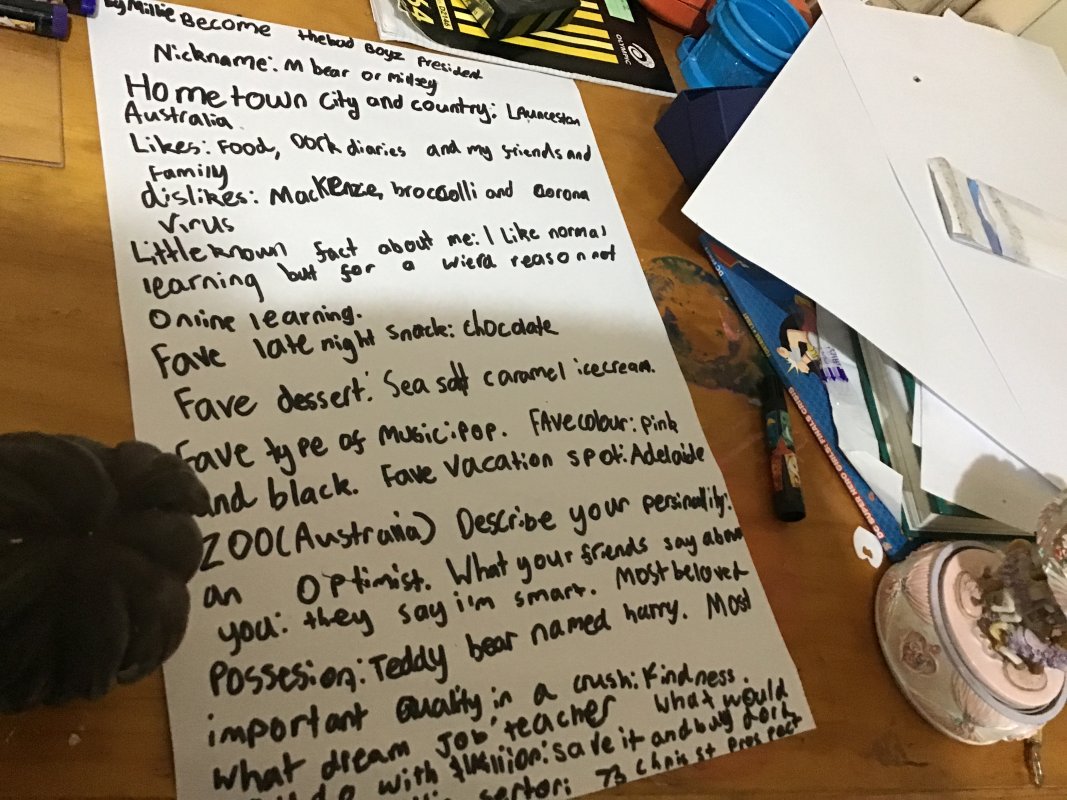 by Millie Become thebad Boyz President
Nickname: M bear or midsey
Hometown City and country: Launceston
Australia
Likes: Food, Dork diaries and my friends and
Family
dislikes: Mackenzie, broccolli and corona
Virus
Little known fact about me: I like normal
learning but for a wierd reason not
Online learning.
Fave late night snack: chocolate
Fave dessert: Sea salt caramel icecream.
Fave type of Music: pop. FAve colour: pink
and black. Fave vacation spot: Adelaide
ZOO (Australia) Describe your personality:
an optimist. What your friends say about
you: they say i'm smart. Most beloved
Possesion: Teddy bear named harry. Most
important quality in a crush: Kindness.
What dream Job teacher What would
do with $1 Million: save it and buy Dork
OLYMPIC
DC SUPER HERO GIRLS: FINALS CRISIS